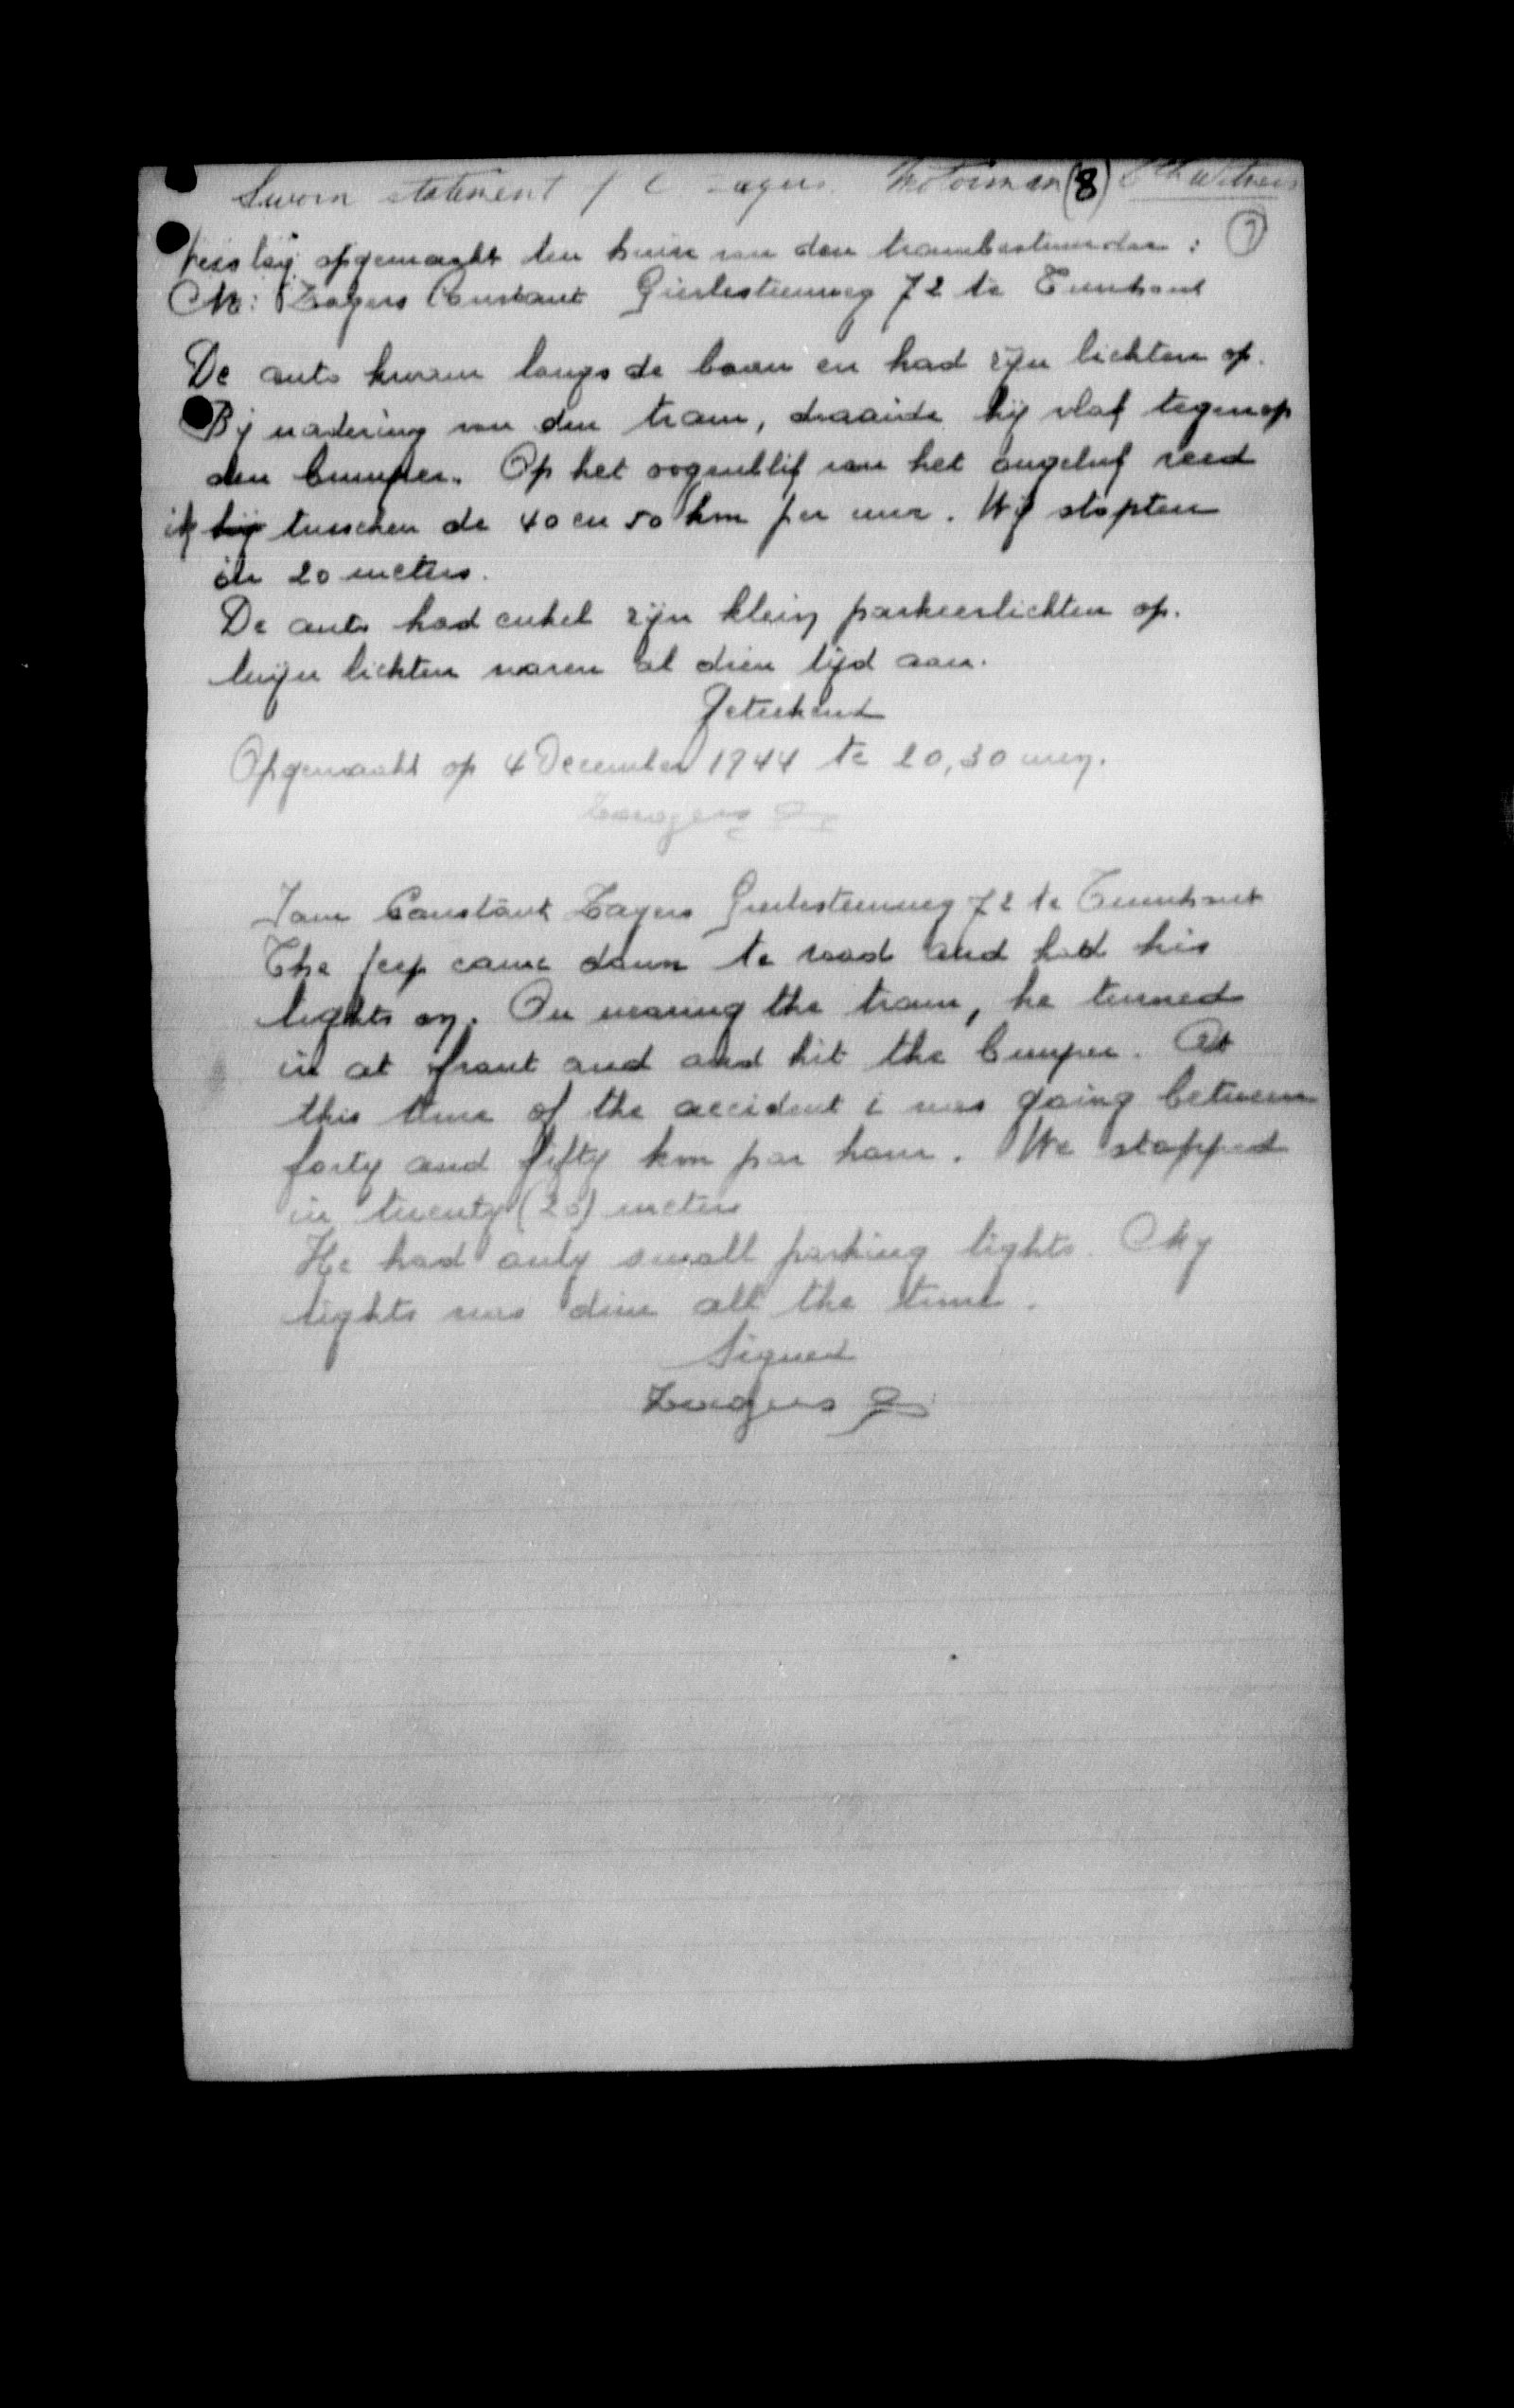 Sworn statement of C Zagers Motorman (8) 8th Witness
7
Verslag opgemaakt ten huize van den trambestuurder :
M: Zagers Constant Gierlesteenweg 72 te Turnhout
De auto kwam langs de baan en had zijn lichten op.
Bij nadering van den tram, draaide hij vlak tegenop
den bumper. Op het oogenblik van het ongeluk reed
ik hij tusschen de 40 en 50 km per uur. Wij stopten
in 20 meters.
De auto had enkel zijn klein parkeerlichten op.
Mijn lichten waren al dien tijd aan.
Geteekend
Opgemaakt op 4 December 1944 te 20,30 uur.
Zaegers C
I am Constant Zagers Gierlesteenweg 72 te Turnhout
The jeep came down te road and had his
lights on. On nearing the tram, he turned
in at front and and hit the bumper. At
this time of the accident i was going between
forty and fifty km par hour. We stopped
in twenty (20) meters
He had only small parking lights. My
lights was dim all the time.
Signed
Zaegers C